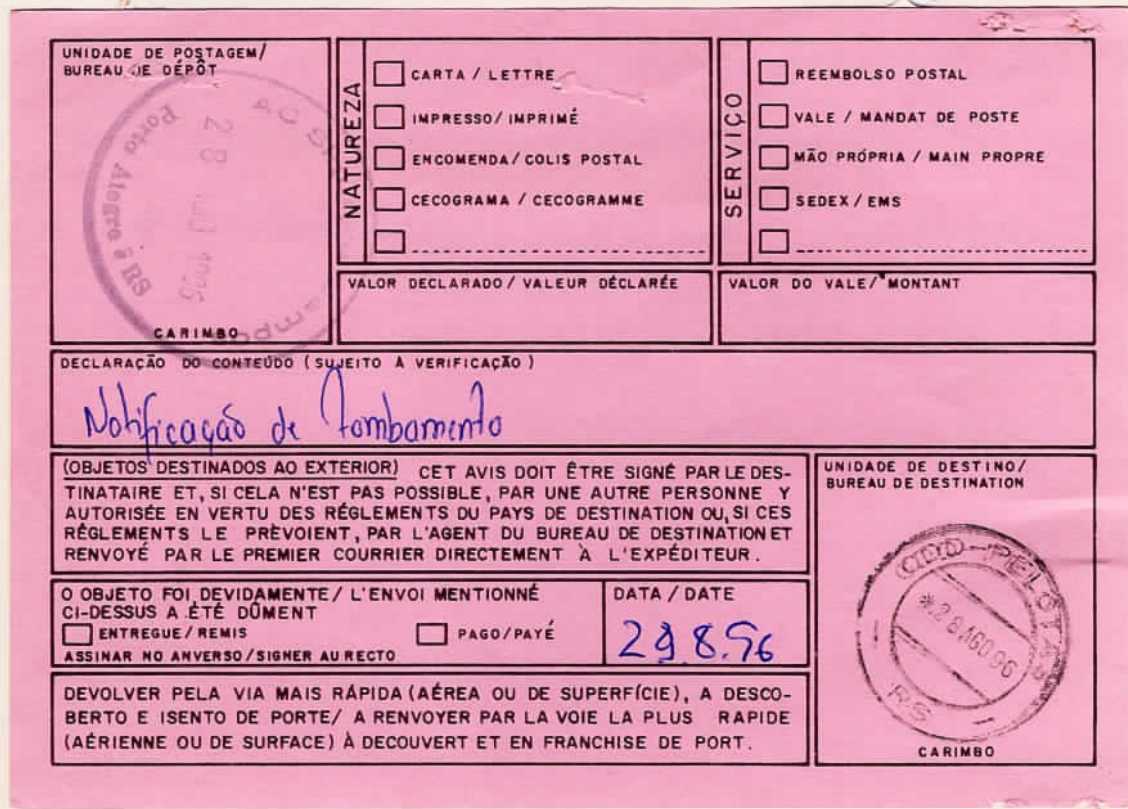 UNIDADE DE POSTAGEM/
BUREAU DE DÉPÔT
Porto Alegre RS
CARIMBO
NATUREZA
CARTA / LETTRE
IMPRESSO / IMPRIMÉ
ENCOMENDA / COLIS POSTAL
CECOGRAMA / CECOGRAMME
SERVIÇO
REEMBOLSO POSTAL
VALE / MANDAT DE POSTE
MÃO PRÓPRIA / MAIN PROPRE
SEDEX / EMS
VALOR DECLARADO / VALEUR DÉCLARÉE
VALOR DO VALE / MONTANT
DECLARAÇÃO DO CONTEÚDO (SUJEITO À VERIFICAÇÃO)
Notificação de Tombamento
(OBJETOS DESTINADOS AO EXTERIOR) CET AVIS DOIT ÊTRE SIGNÉ PAR LE DES-
TINATAIRE ET, SI CELA N'EST PAS POSSIBLE, PAR UNE AUTRE PERSONNE Y
AUTORISÉE EN VERTU DES RÉGLEMENTS DU PAYS DE DESTINATION OU, SI CES
RÉGLEMENTS LE PRÈVOIENT, PAR L'AGENT DU BUREAU DE DESTINATION ET
RENVOYÉ PAR LE PREMIER COURRIER DIRECTEMENT À L'EXPÉDITEUR.
UNIDADE DE DESTINO/
BUREAU DE DESTINATION
PELOTAS
RS
CARIMBO
O OBJETO FOI DEVIDAMENTE / L'ENVOI MENTIONNÉ
CI-DESSUS A ÉTÉ DÛMENT
ENTREGUE / REMIS
PAGO / PAYÉ
ASSINAR NO ANVERSO / SIGNER AU RECTO
DATA / DATE
29.8.96
DEVOLVER PELA VIA MAIS RÁPIDA (AÉREA OU DE SUPERFÍCIE), A DESCO-
BERTO E ISENTO DE PORTE / A RENVOYER PAR LA VOIE LA PLUS RAPIDE
(AÉRIENNE OU DE SURFACE) À DECOUVERT ET EN FRANCHISE DE PORT.